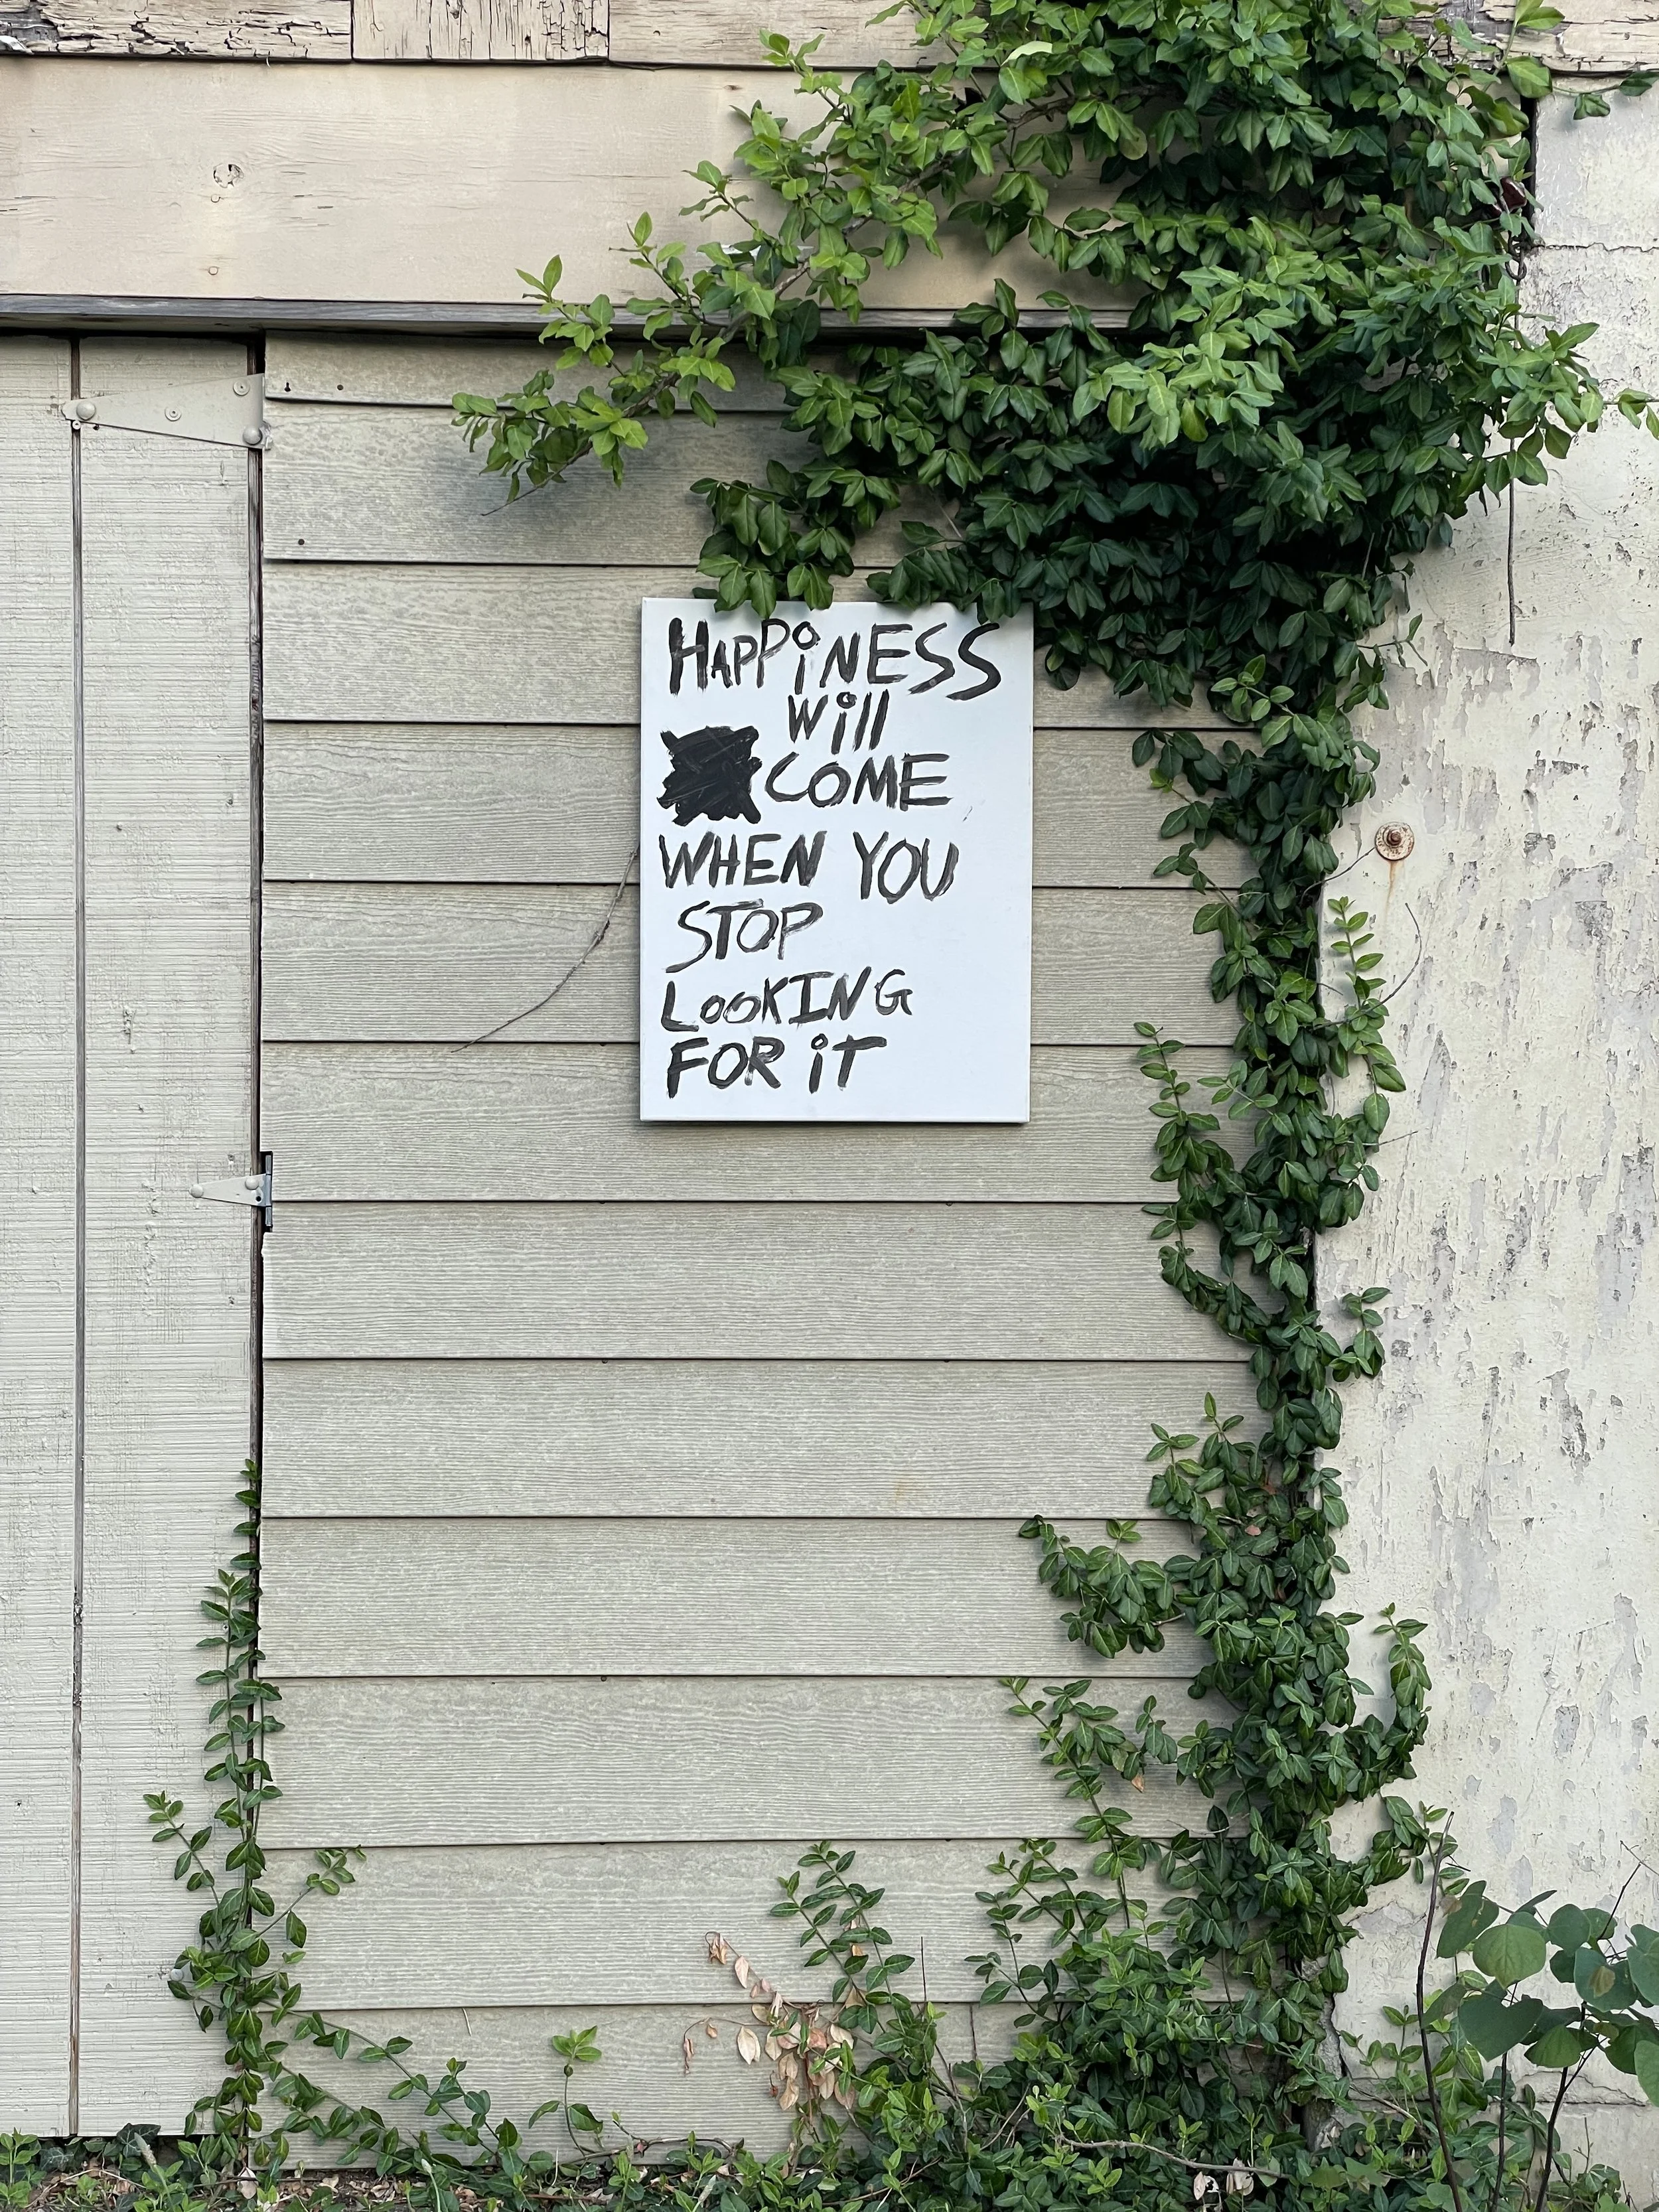 HAPPiNESS
Will
COME
WHEN YOU
STOP
LOOKING
FOR iT